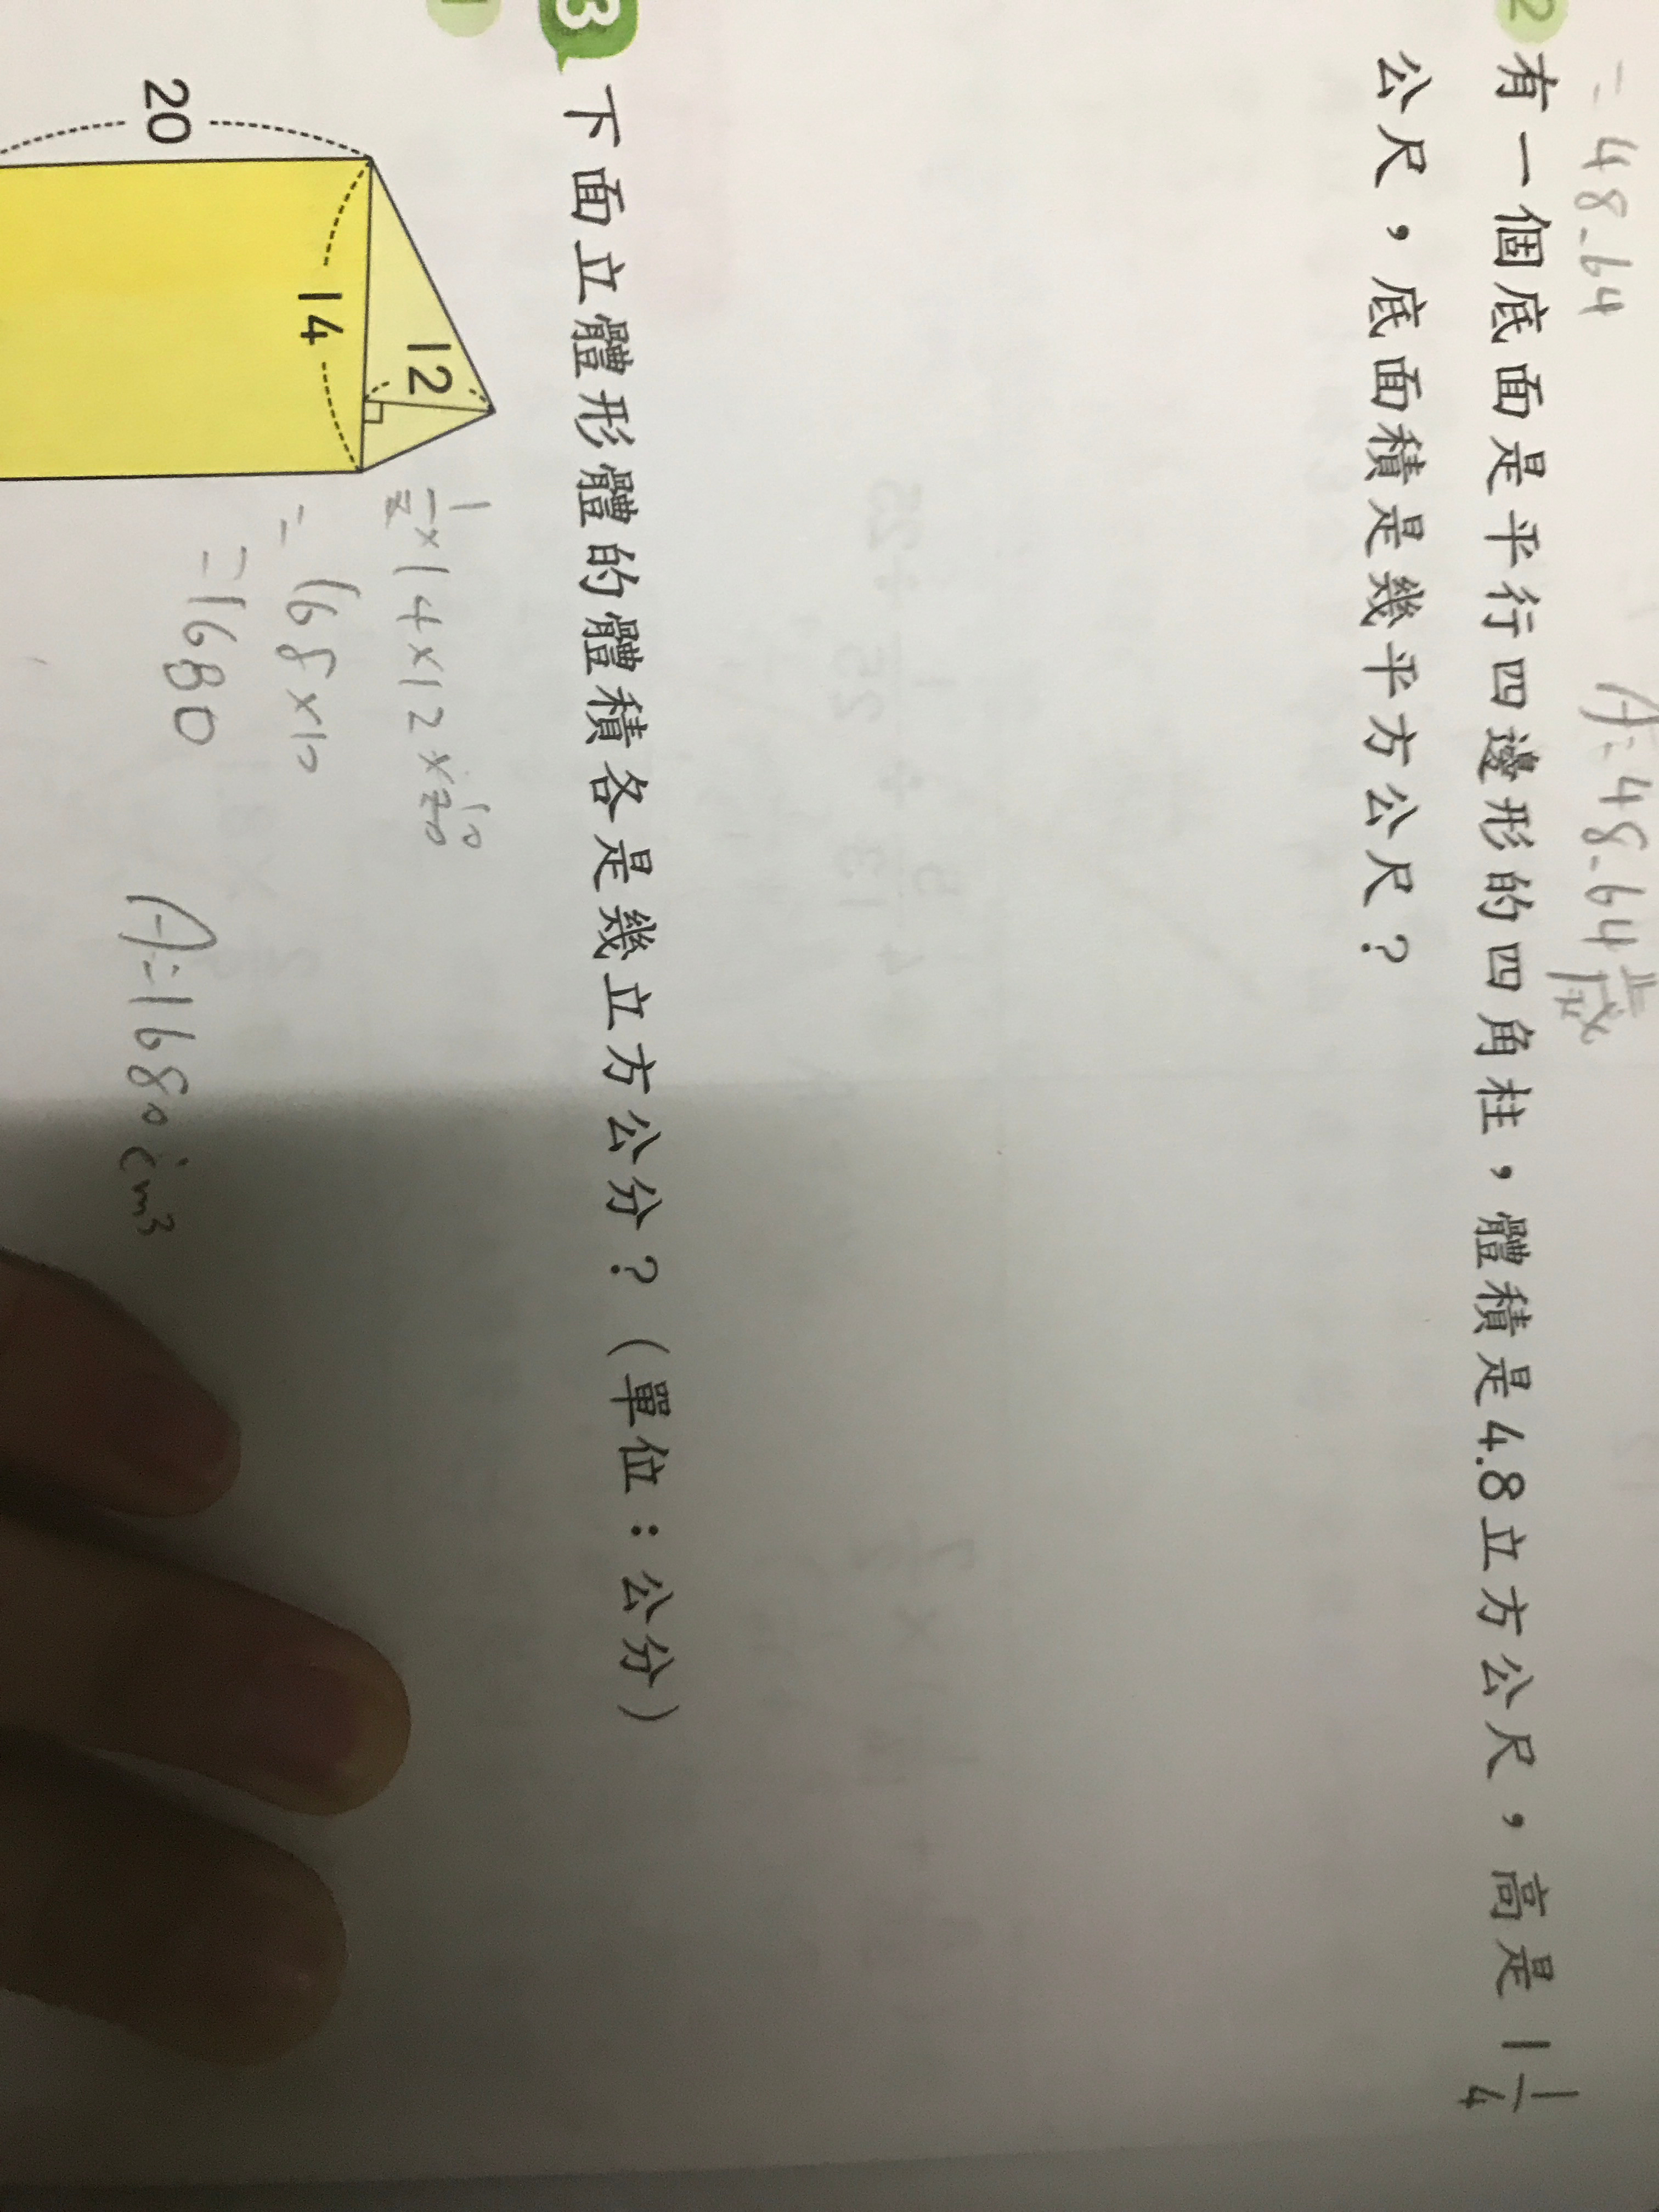 = 48.64
A: 48.64
2 有一個底面是平行四邊形的四角柱，體積是4.8立方公尺，高是1 1/4
公尺，底面積是幾平方公尺？
3 下面立體形體的體積各是幾立方公分？（單位：公分）
12
14
20
1/2 × 14 × 12 × 20 10
= 168 × 10
= 1680
A: 1680 cm³